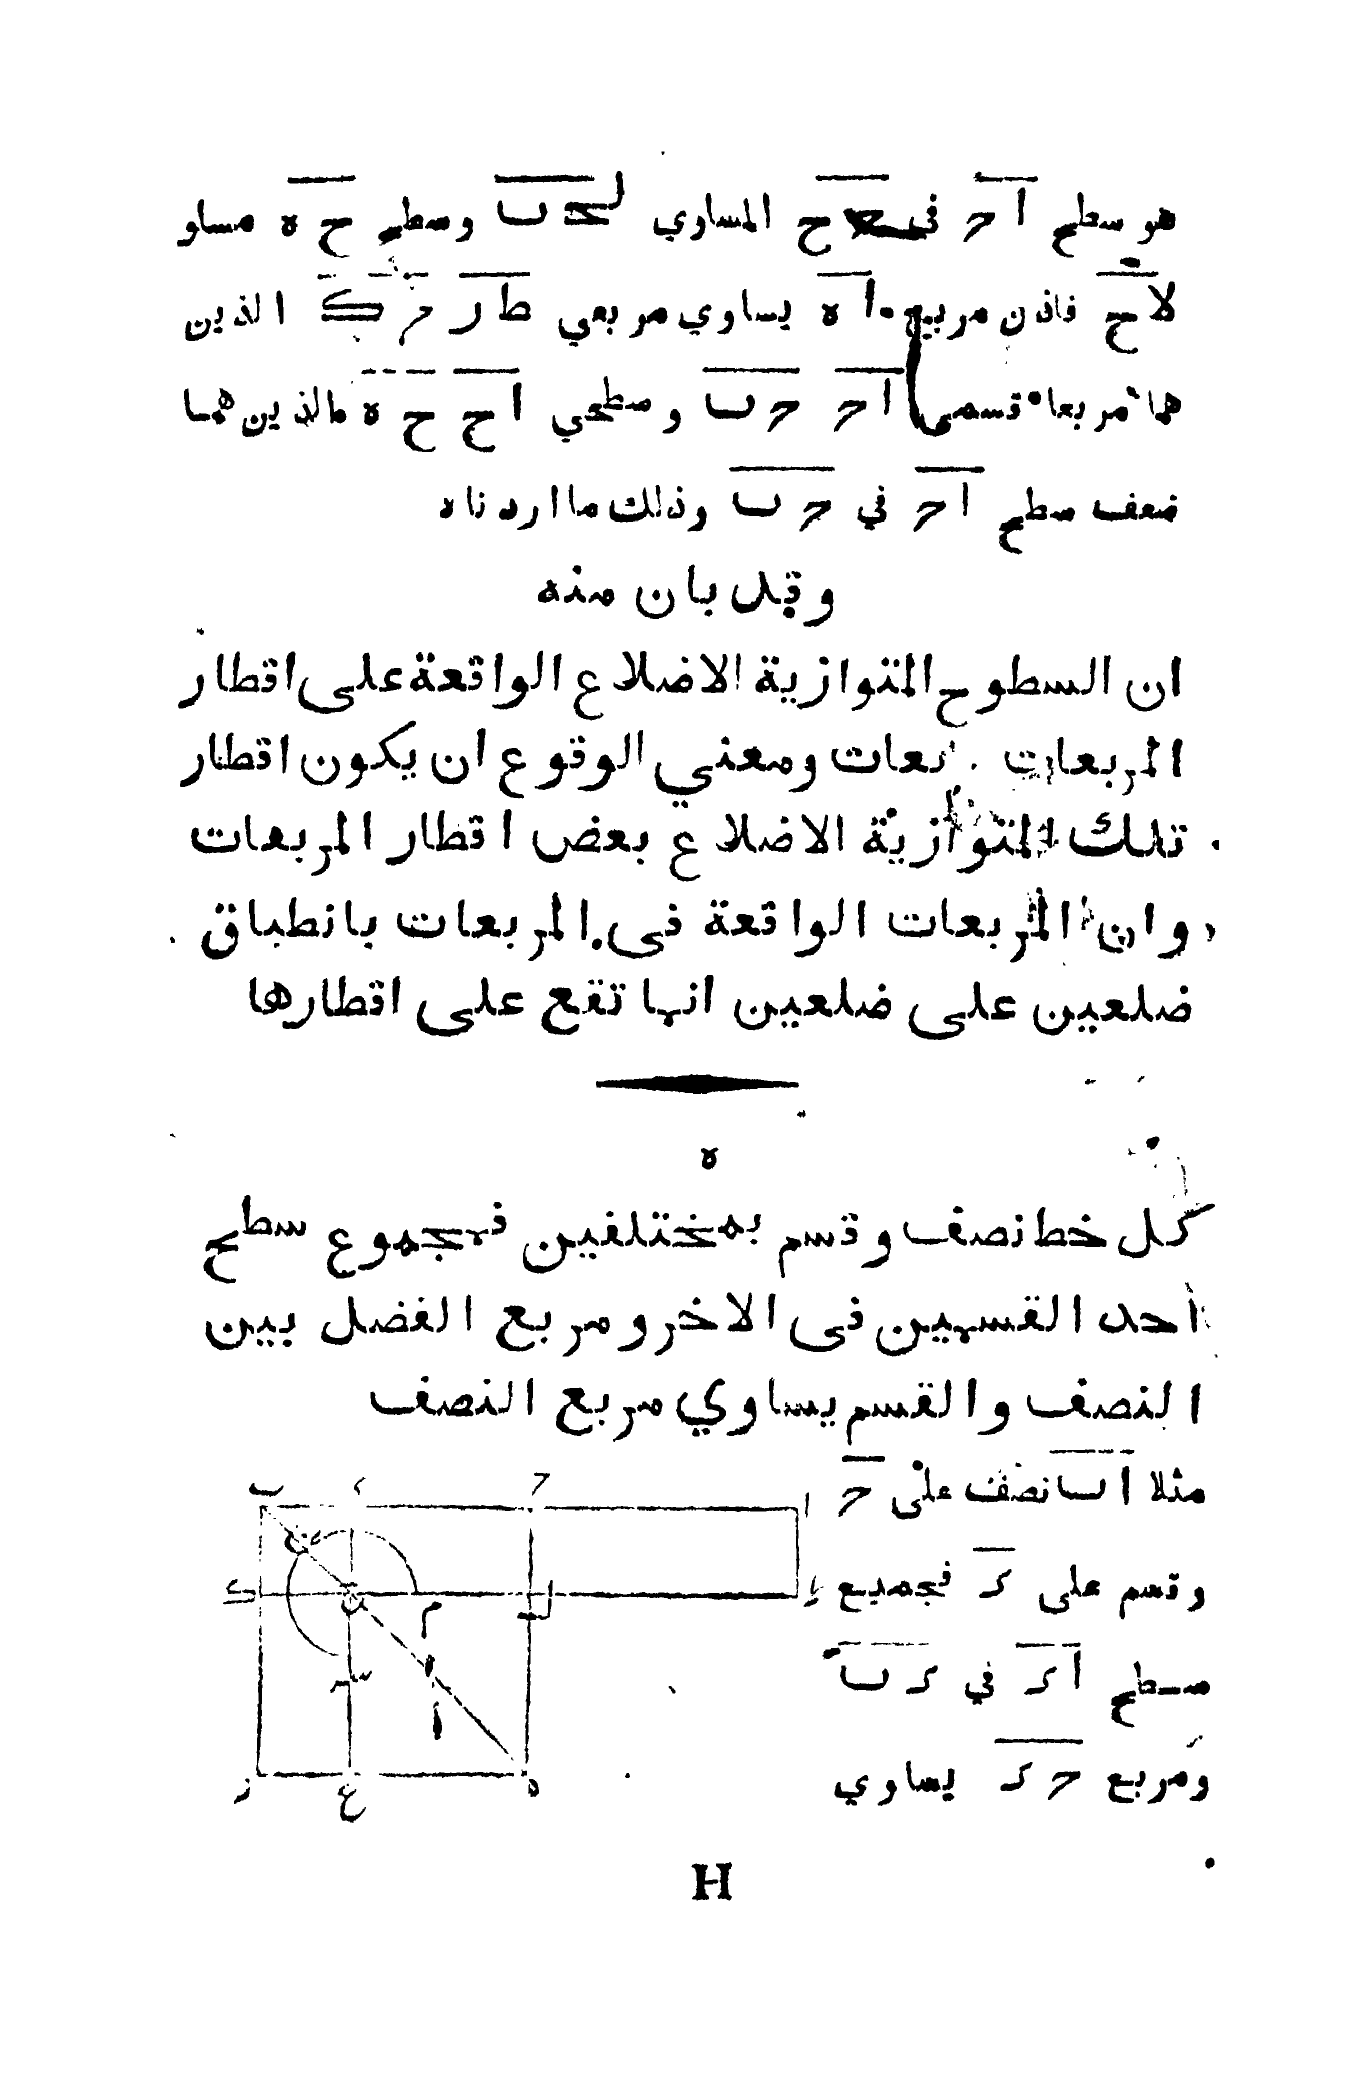 هو سطح ا حـ في حـ ح المساوي لحـ ب وسطح ح ه مساو
لا ح فاذن مربع ا ه يساوي مربعي ط ر حـ ك الذين
هما مربعا قسمى ا حـ حـ ب وسطحي ا ح ح ه مالذين هما
ضعف سطح ا حـ في حـ ب وذلك ما اردناه
وقد بان منه
ان السطوح المتوازية الاضلاع الواقعة على اقطار
المربعات ومعني الوقوع ان يكون اقطار
تلك المتوازية الاضلاع بعض اقطار المربعات
وان المربعات الواقعة فى المربعات بانطباق
ضلعين على ضلعين انها تقع على اقطارها
ه
كل خط نصف وقسم بمختلفين فمجموع سطح
احد القسمين فى الاخر ومربع الفضل بين
النصف والقسم يساوي مربع النصف
مثلا ا ب نصف على حـ
وقسم على د فجميع
سطح ا د في د ب
ومربع حـ د يساوي
ب د حـ ا
ك ن م ل
س
ز ع ه
H